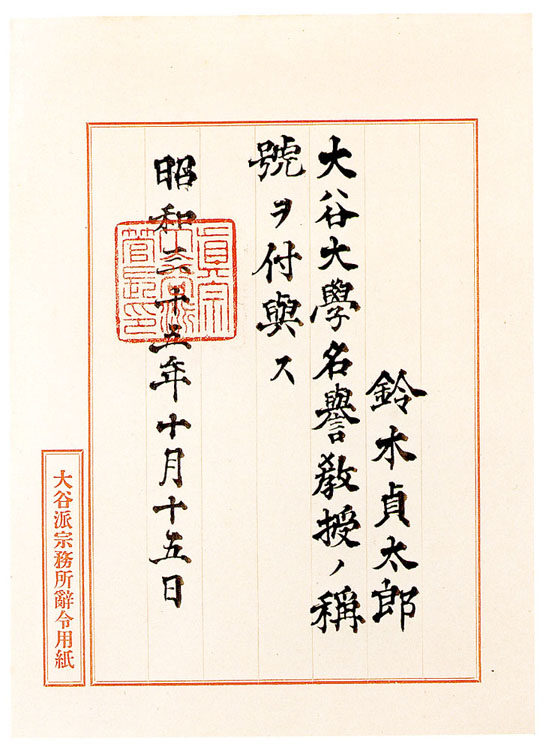 鈴木貞太郎
大谷大學名譽敎授ノ稱
號ヲ付與ス
昭和三十五年十月十五日
大谷派宗務所辭令用紙